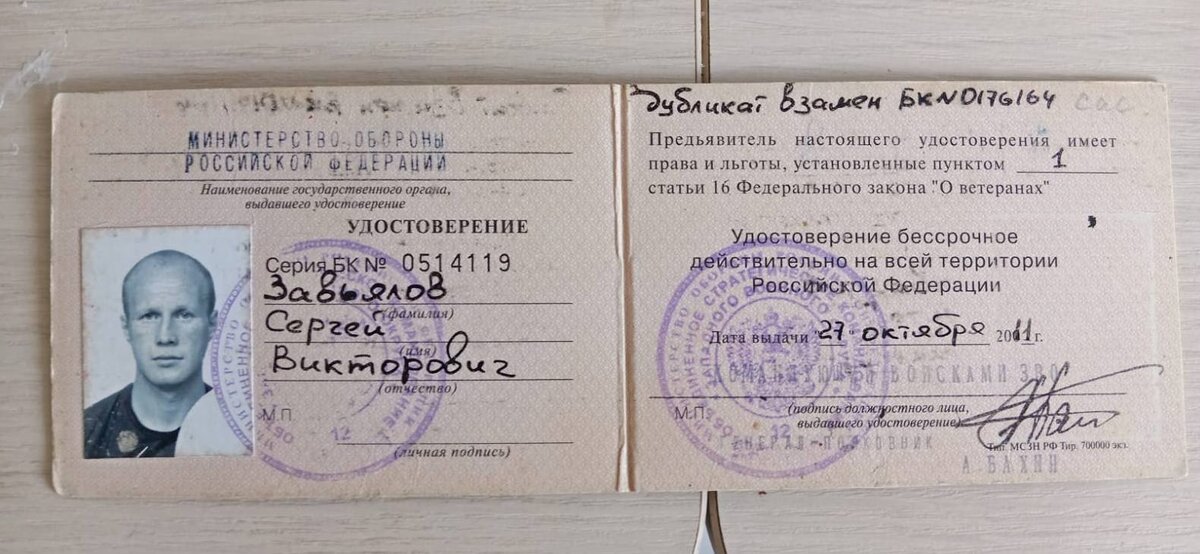 МИНИСТЕРСТВО ОБОРОНЫ
РОССИЙСКОЙ ФЕДЕРАЦИИ
Наименование государственного органа,
выдавшего удостоверение
УДОСТОВЕРЕНИЕ
Серия БК № 0514119
Завьялов
(фамилия)
Сергей
(имя)
Викторович
(отчество)
М.П.
12
(личная подпись)
Дубликат взамен БК N0176164
Предьявитель настоящего удостоверения имеет
права и льготы, установленные пунктом 1
статьи 16 Федерального закона "О ветеранах"
Удостоверение бессрочное
действительно на всей территории
Российской Федерации
Дата выдачи "27" октября 2011г.
КОМАНДУЮЩИЙ ВОЙСКАМИ ЗВО
М.П.
(подпись должностного лица,
выдавшего удостоверение)
12
ГЕНЕРАЛ-ПОЛКОВНИК
Тип. МСЗН РФ Тир. 700000 экз.
А БАХИН